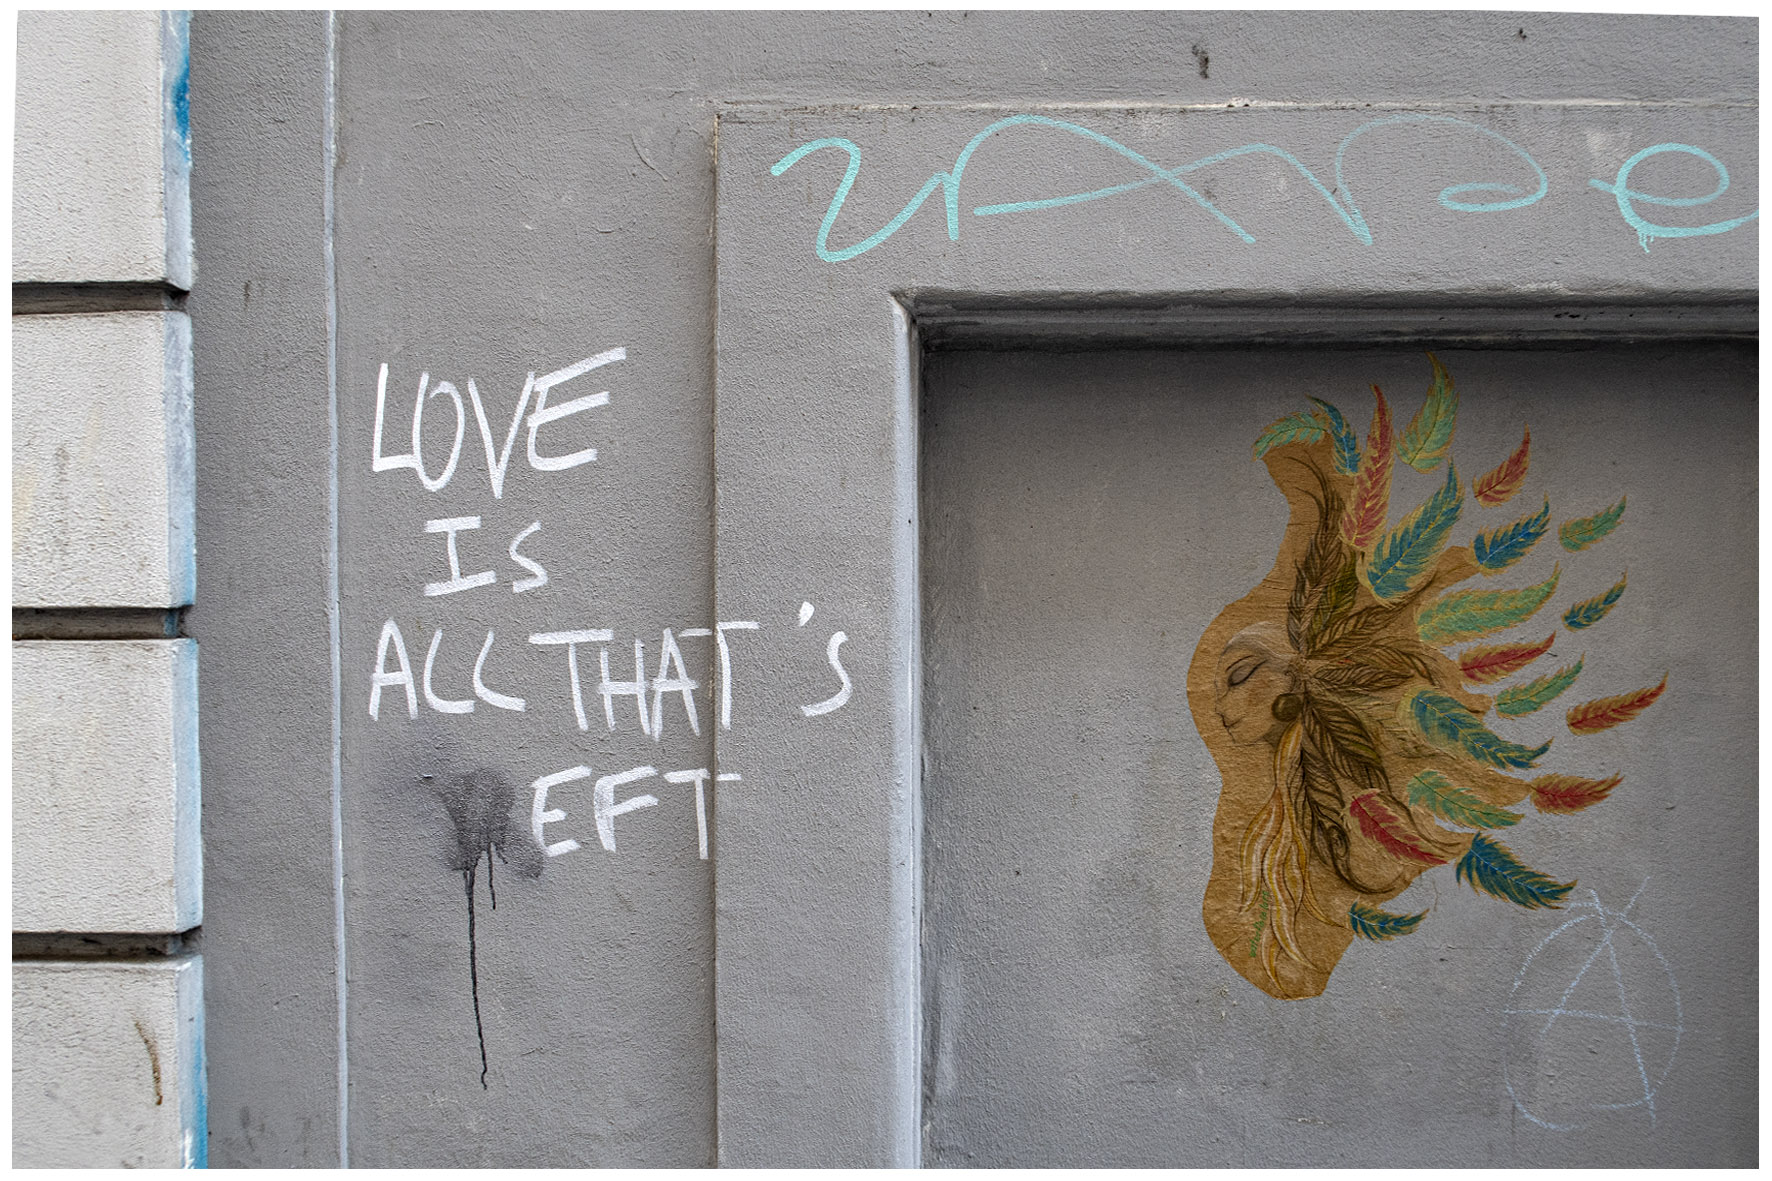 LOVE
IS
ALL THAT'S
EFT